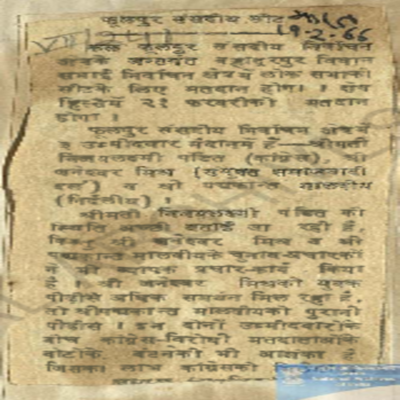 फूलपुर संसदीय सीट
19-2-66
कल फूलपुर संसदीय निर्वाचन
क्षेत्रके अन्तर्गत बहादुरपुर विधान
सभाई निर्वाचन क्षेत्रमें लोक सभाकी
सीटके लिए मतदान होगा । शेष
हिस्सेमें २१ फरवरीको मतदान
होगा ।
फूलपुर संसदीय निर्वाचन क्षेत्रमें
३ उम्मीदवार मैदानमें हैं—श्रीमती
विजयलक्ष्मी पंडित (कांग्रेस), श्री
जनेश्वर मिश्र (संयुक्त समाजवादी
दल) व श्री पद्मकान्त मालवीय
(निर्दलीय) ।
श्रीमती विजयलक्ष्मी पंडित की
स्थिति अच्छी बताई जा रही है,
किन्तु श्री जनेश्वर मिश्र व श्री
पद्मकान्त मालवीयके चुनाव-प्रचारकों
ने भी व्यापक प्रचार-कार्य किया
है । श्री जनेश्वर मिश्रको युवक
पीढ़ीसे अधिक समर्थन मिल रहा है,
तो श्रीपद्मकान्त मालवीयको पुरानी
पीढ़ीसे । इन दोनों उम्मीदवारोंके
बीच कांग्रेस-विरोधी मतदाताओंके
वोटोंके बंटनेकी भी आशंका है
जिसका लाभ कांग्रेसको